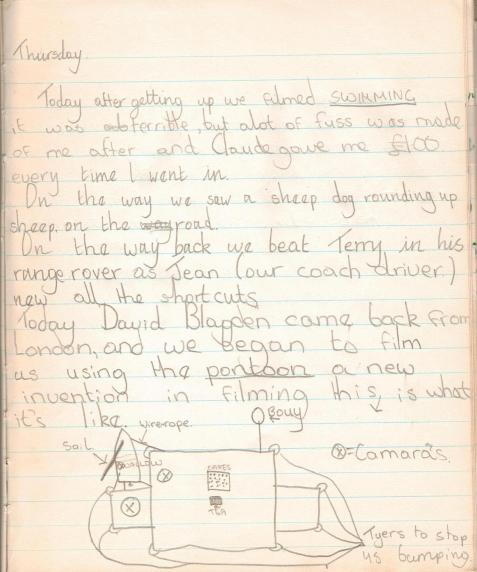 Thursday.
Today after getting up we filmed SWIMMING
it was terrible, but alot of fuss was made
of me after and Claude gave me £100
every time I went in.
On the way we saw a sheep dog rounding up
sheep on the way road.
On the way back we beat Terry in his
range rover as Jean (our coach driver)
new all the shortcuts
Today David Blagden came back from
London, and we began to film
us using the pontoon a new
invention in filming this, is what
it's like.
wirerope.
Bouy
Sail
SWALLOW
CAKES
TEA
⊗=Camara's.
Tyers to stop
us bumping.